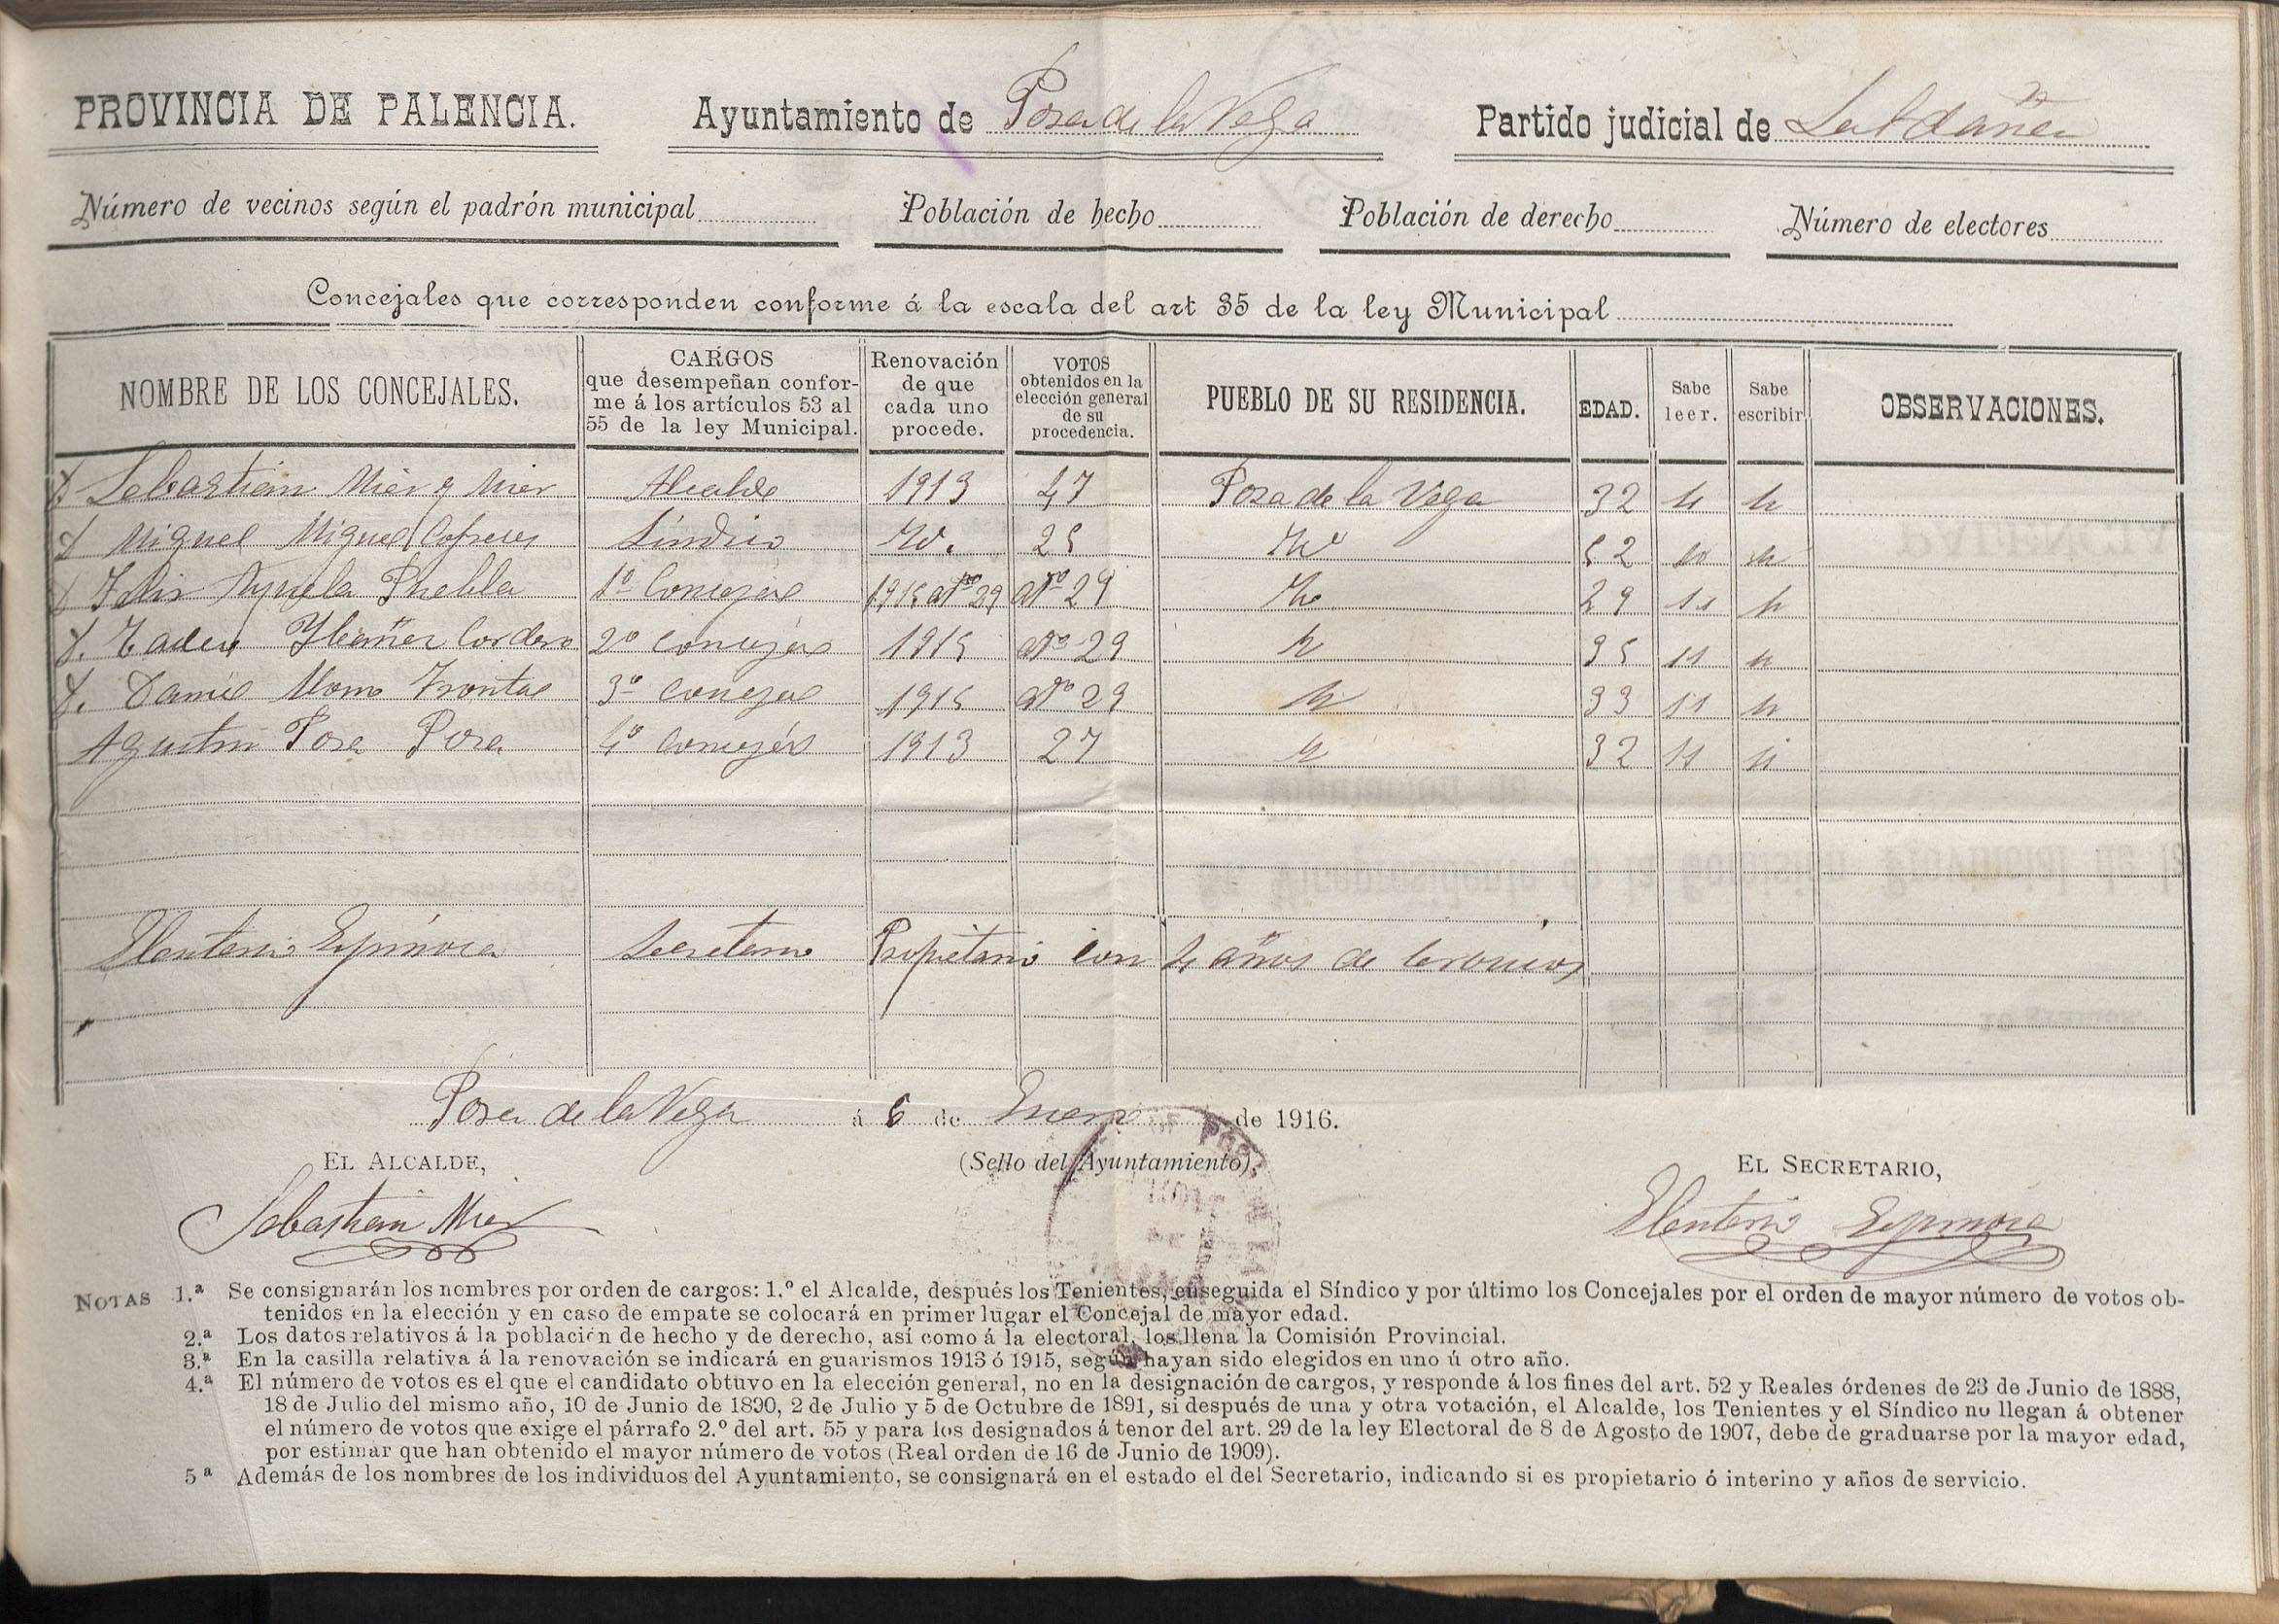 PROVINCIA DE PALENCIA. Ayuntamiento de Poza de la Vega Partido judicial de Saldaña
Número de vecinos según el padrón municipal Población de hecho Población de derecho Número de electores
Concejales que corresponden conforme á la escala del art 35 de la ley Municipal
NOMBRE DE LOS CONCEJALES. CARGOS que desempeñan conforme á los artículos 53 al 55 de la ley Municipal. Renovación de que cada uno procede. VOTOS obtenidos en la elección general de su procedencia. PUEBLO DE SU RESIDENCIA. EDAD. Sabe leer. Sabe escribir OBSERVACIONES.
Sebastián Mier y Mier Alcalde 1913 47 Poza de la Vega 32 si si
Miguel Miguel Síndico Id. 25 Id 52 si si
Felix Ayuela Puebla 1º Concejal 1915 artº 29 artº 29 Id 29 si si
Tadeo Ybañez Cordero 2º Concejal 1915 artº 29 35 si si
Daniel 3º Concejal 1915 artº 29 33 si si
Agustin Poza Poza 4º Concejal 1913 27 32 si si
Eleuterio Espinosa Secretario Propietario con 4 años de servicios
Poza de la Vega á 6 de Enero de 1916.
EL ALCALDE, (Sello del Ayuntamiento), EL SECRETARIO,
Sebastian Mier Eleuterio Espinosa
NOTAS 1.ª Se consignarán los nombres por orden de cargos: 1.º el Alcalde, después los Tenientes, enseguida el Síndico y por último los Concejales por el orden de mayor número de votos ob-
tenidos en la elección y en caso de empate se colocará en primer lugar el Concejal de mayor edad.
2.ª Los datos relativos á la población de hecho y de derecho, así como á la electoral, los llena la Comisión Provincial.
3.ª En la casilla relativa á la renovación se indicará en guarismos 1913 ó 1915, según hayan sido elegidos en uno ú otro año.
4.ª El número de votos es el que el candidato obtuvo en la elección general, no en la designación de cargos, y responde á los fines del art. 52 y Reales órdenes de 23 de Junio de 1888,
18 de Julio del mismo año, 10 de Junio de 1890, 2 de Julio y 5 de Octubre de 1891, si después de una y otra votación, el Alcalde, los Tenientes y el Síndico no llegan á obtener
el número de votos que exige el párrafo 2.º del art. 55 y para los designados á tenor del art. 29 de la ley Electoral de 8 de Agosto de 1907, debe de graduarse por la mayor edad,
por estimar que han obtenido el mayor número de votos (Real orden de 16 de Junio de 1909).
5ª Además de los nombres de los individuos del Ayuntamiento, se consignará en el estado el del Secretario, indicando si es propietario ó interino y años de servicio.